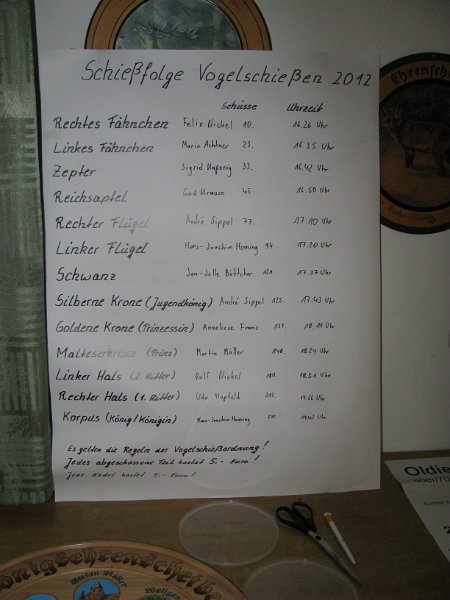 Schießfolge Vogelschießen 2012
Schüsse Uhrzeit
Rechtes Fähnchen Felix Nickel 10. 16.26 Uhr
Linkes Fähnchen Mario 23. 16.35 Uhr
Zepter Sigrid 33. 16.42 Uhr
Reichsapfel Gerd Krause 45. 16.50 Uhr
Rechter Flügel André Sippel 73. 17.10 Uhr
Linker Flügel Hans-Joachim Henning 94. 17.20 Uhr
Schwanz Jan-Jelle Böttcher 121. 17.37 Uhr
Silberne Krone (Jugendkönig) André Sippel 125. 17.43 Uhr
Goldene Krone (Prinzessin) Anneliese Franz 133. 18.11 Uhr
Malteserkreuz (Prinz) Martin Möller 18.24 Uhr
Linker Hals (2. Ritter) Rolf Nickel 18.51 Uhr
Rechter Hals (1. Ritter) Udo Hopfeld 212. 19.26 Uhr
Korpus (König/Königin) Hans-Joachim Henning Uhr
Es gelten die Regeln der Vogelschießordnung!
Jedes abgeschossene Teil kostet 5,- Euro!
Jede Nadel kostet 5,- Euro!
Ehrensch
Oldie
60er/70
Königsehrenscheibe
Stefan Weller